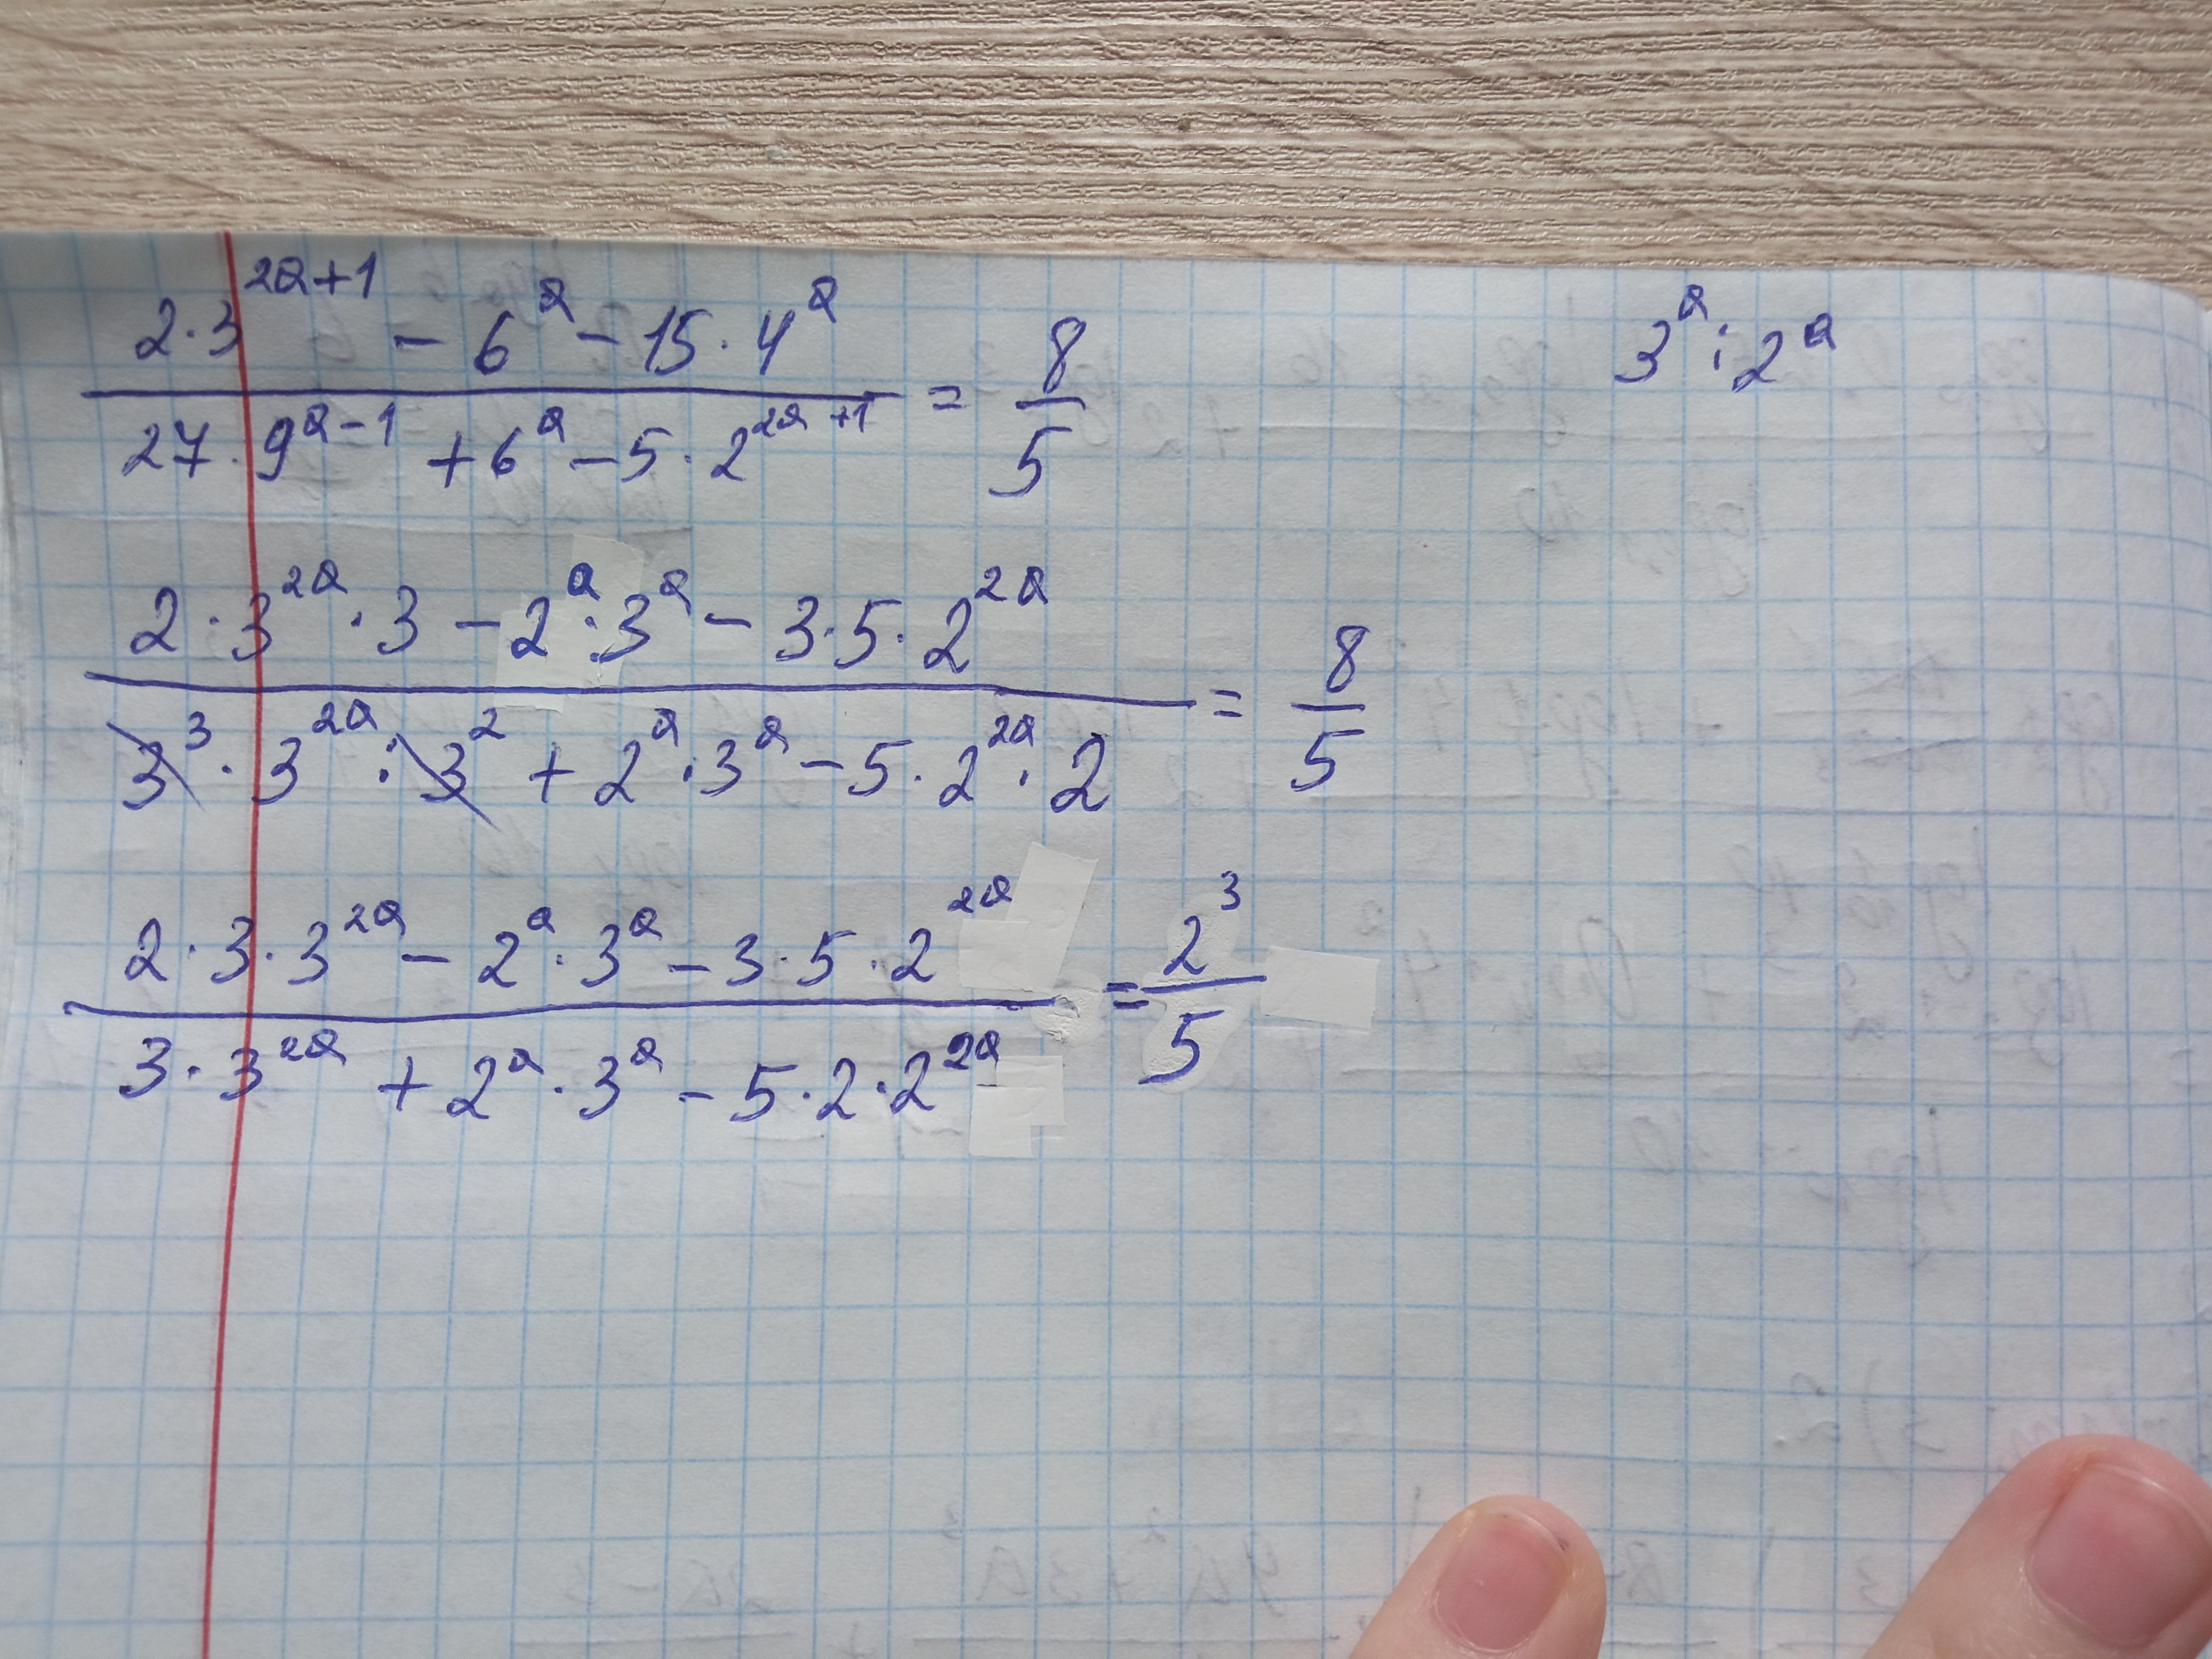 (2·3^(2a+1) − 6^a − 15·4^a)/(27·9^(a−1) + 6^a − 5·2^(2a+1)) = 8/5    3^a : 2^a
(2·3^(2a)·3 − 2^a·3^a − 3·5·2^(2a))/(3^3·3^(2a) : 3^2 + 2^a·3^a − 5·2^(2a)·2) = 8/5
(2·3·3^(2a) − 2^a·3^a − 3·5·2^(2a))/(3·3^(2a) + 2^a·3^a − 5·2·2^(2a)) = 2^3/5